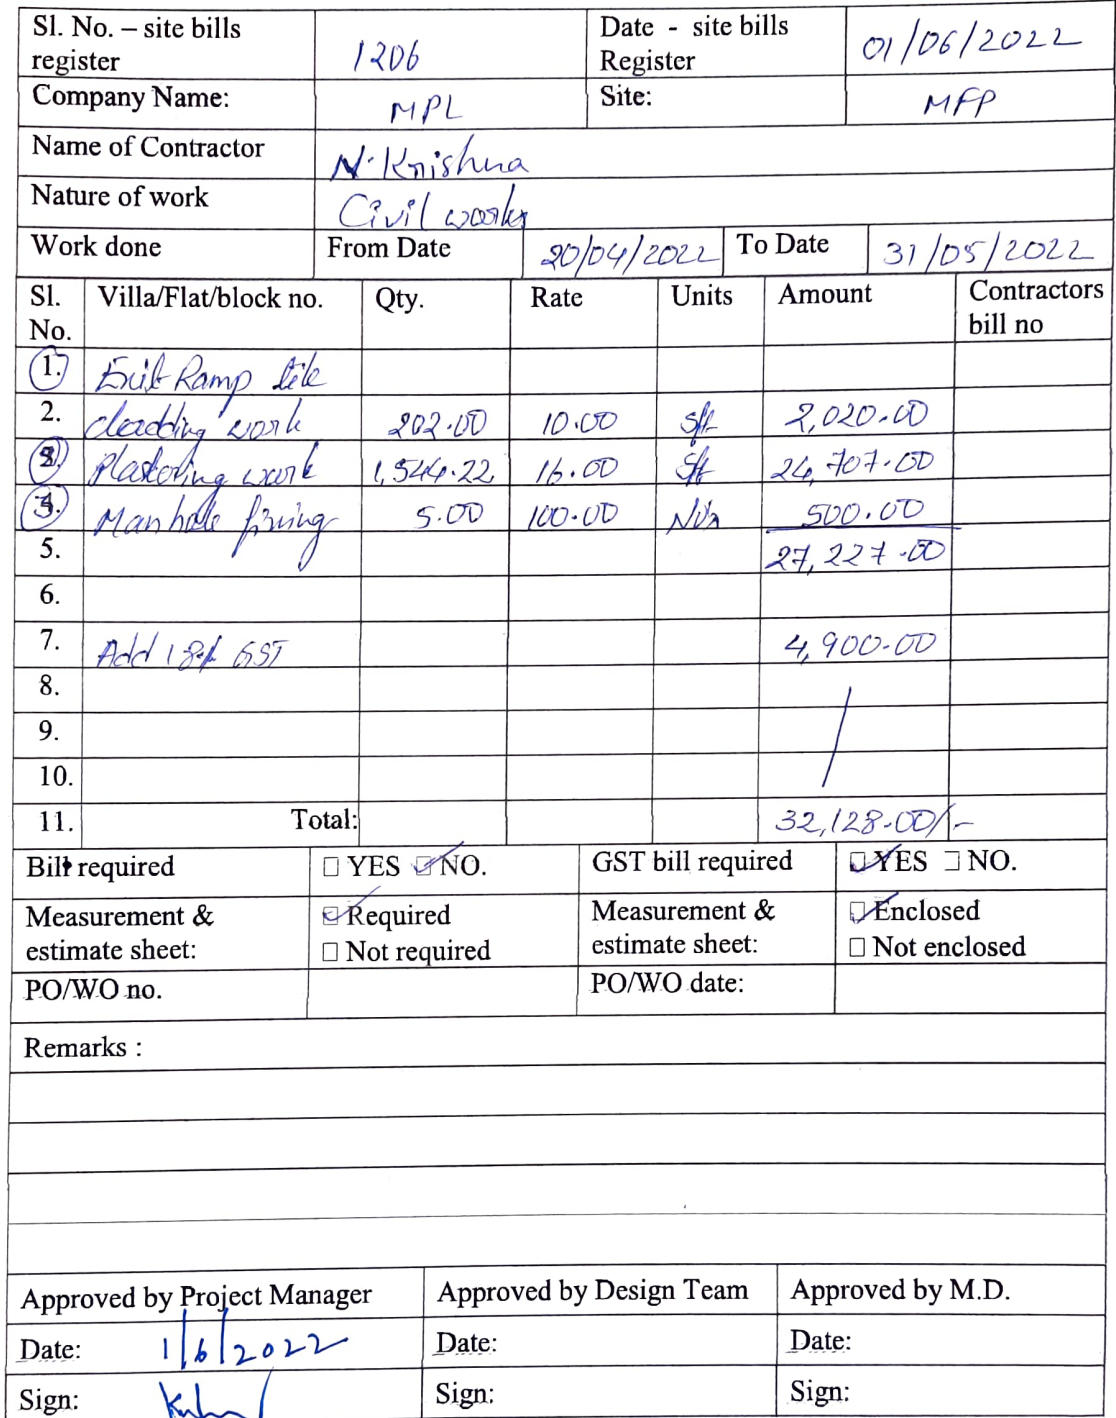 Sl. No. – site bills register 1206 Date - site bills Register 01/06/2022
Company Name: MPL Site: MFP
Name of Contractor N. Krishna
Nature of work Civil works
Work done From Date 20/04/2022 To Date 31/05/2022
Sl. No. Villa/Flat/block no. Qty. Rate Units Amount Contractors bill no
1. Exit Ramp tile
2. cladding work 202.00 10.00 sft 2,020.00
2. Plastering work 1,544.22 16.00 sft 24,707.00
3. Manhole fixing 5.00 100.00 No's 500.00
5. 27,227.00
6.
7. Add 18% GST 4,900.00
8.
9.
10.
11. Total: 32,128.00/-
Bill required □ YES ☑ NO. GST bill required ☑ YES □ NO.
Measurement & estimate sheet: ☑ Required □ Not required Measurement & estimate sheet: ☑ Enclosed □ Not enclosed
PO/WO no. PO/WO date:
Remarks :
Approved by Project Manager Approved by Design Team Approved by M.D.
Date: 1/6/2022 Date: Date:
Sign: Sign: Sign: